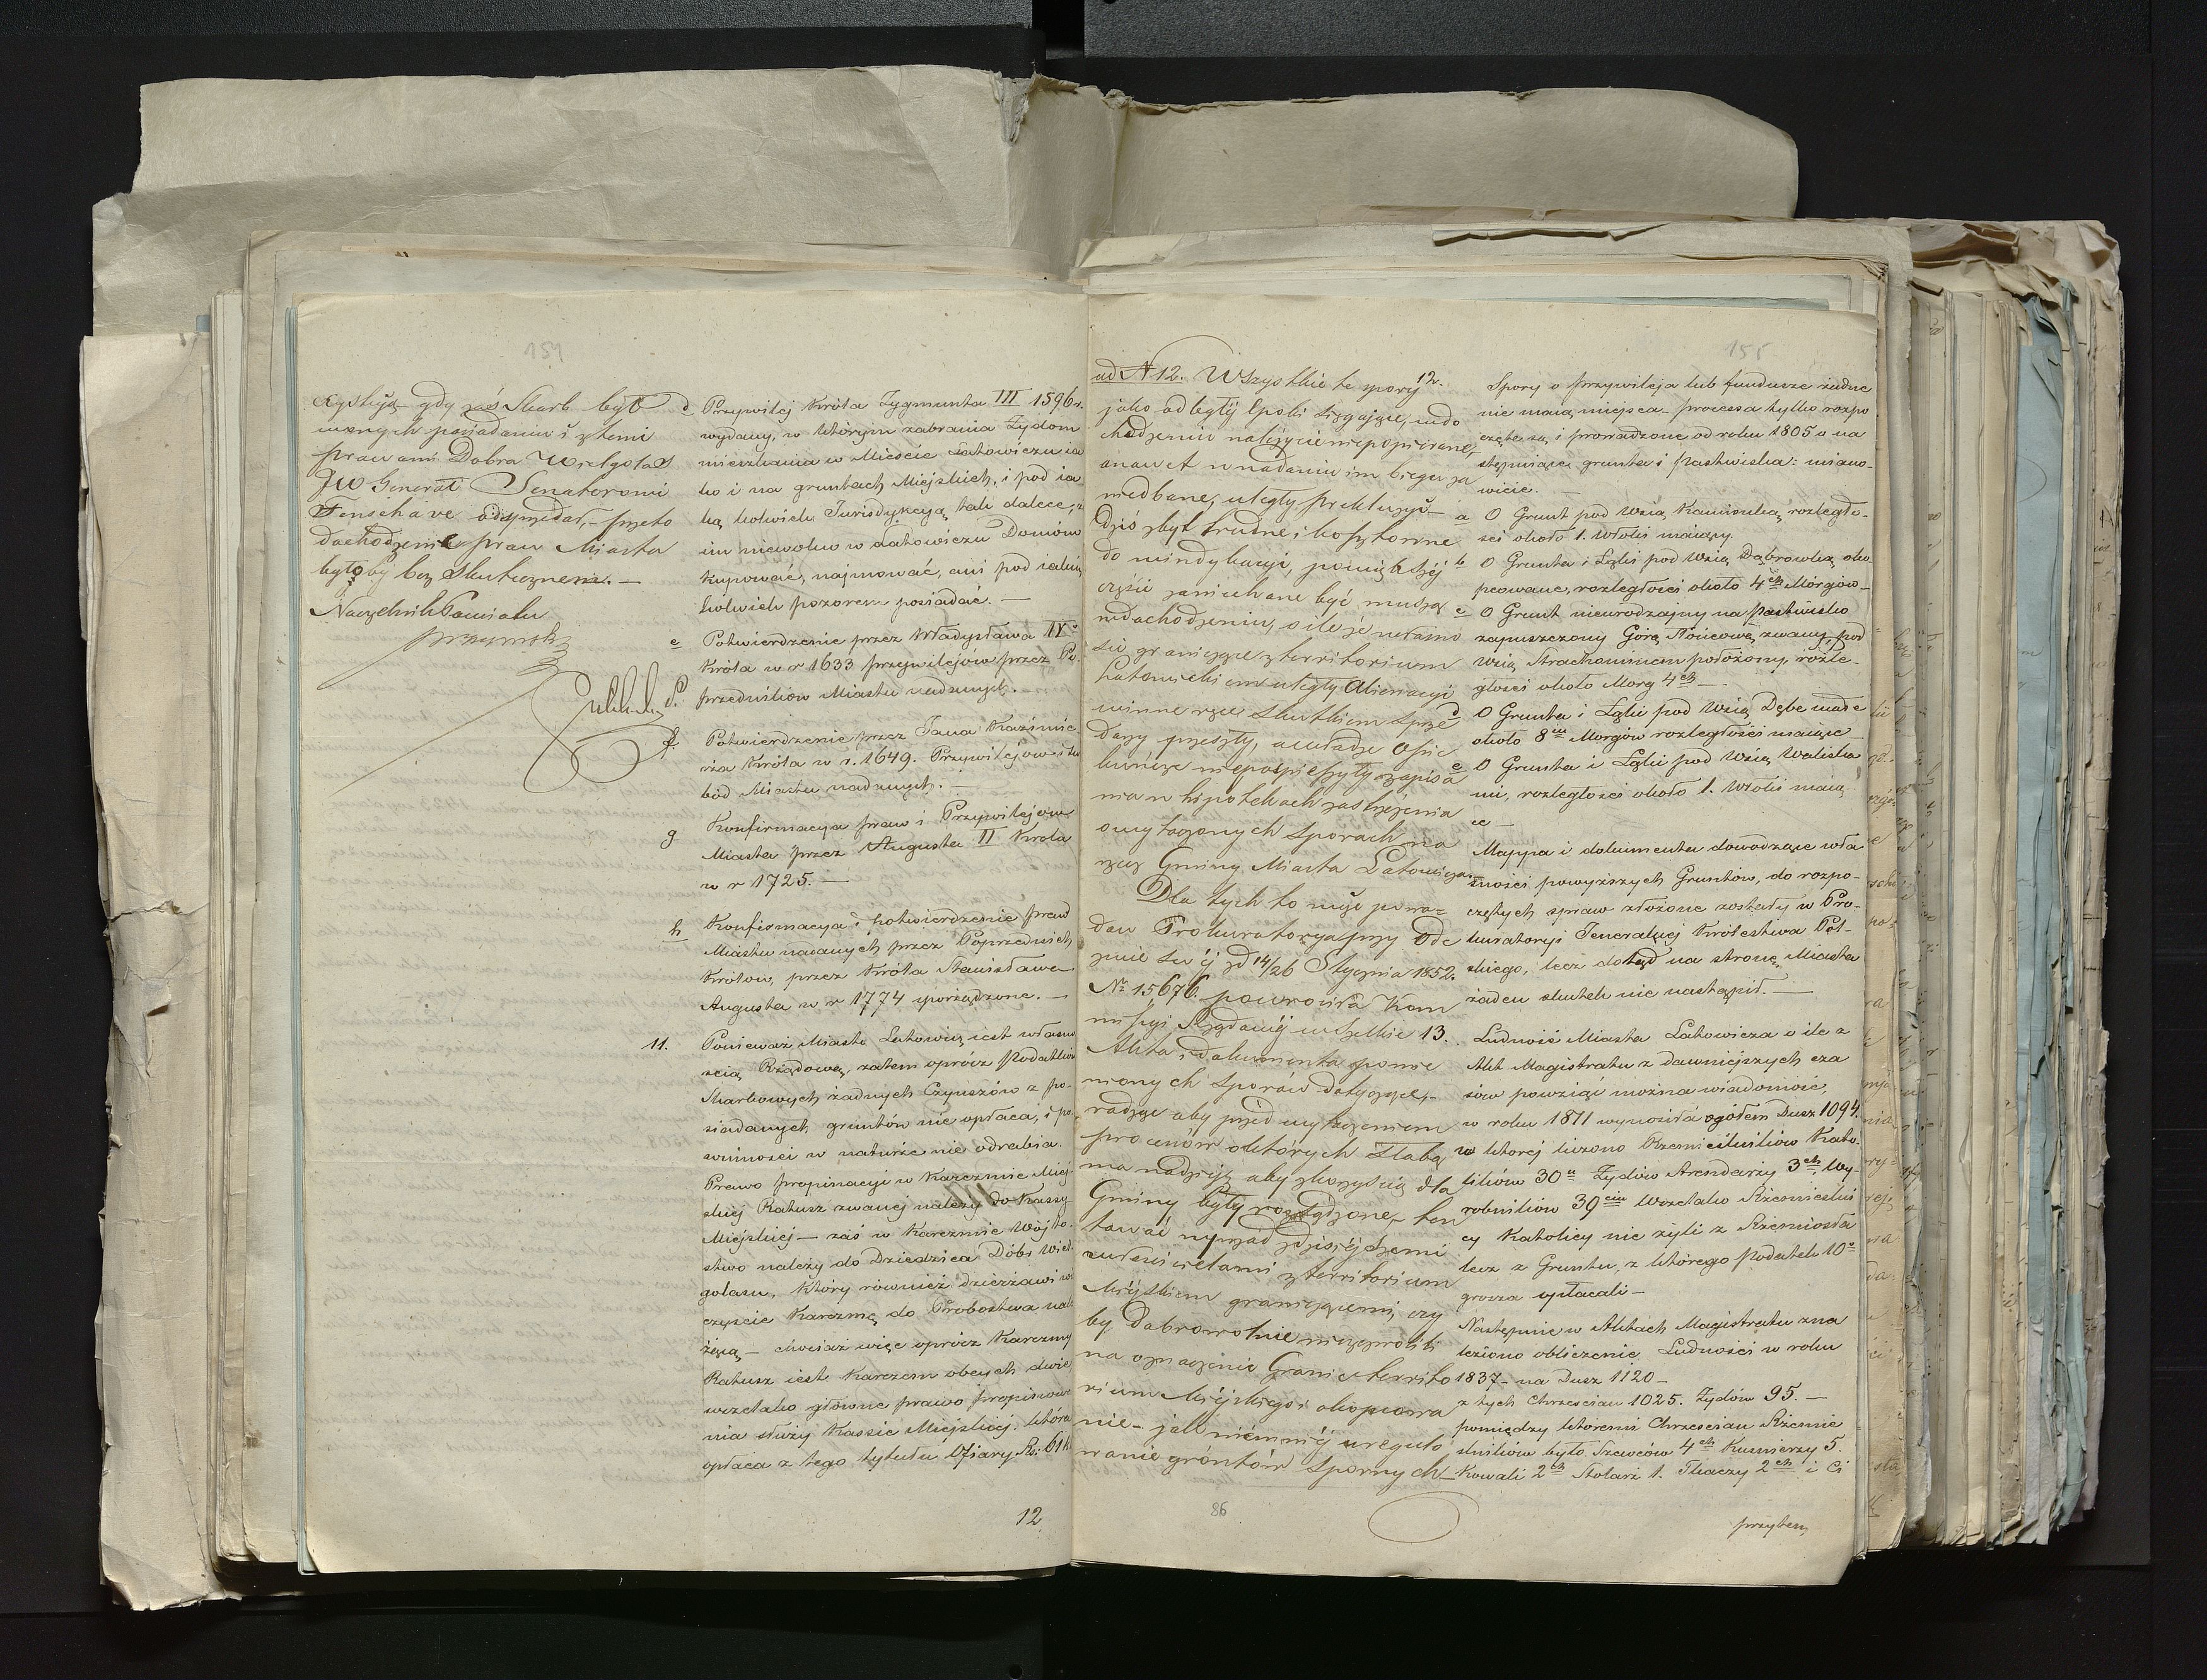 151
czystość gdy zaś Skarb był
praw ami Dobra Wielgolas
JW Generał Senatorowi
Fenschave odsprzedał, – przeto
dochodzenie praw Miasta
byłoby bez Skuteczném. –
Naczelnik Powiatu
d Przywilej Króla Zygmunta III 1596 r.
wydany, w którym zabrania Żydom
mieszkania w Mieście Latowiczu ia
ko i na gruntach Miejskich, i pod ia
ką kolwiek Jurisdykcyą, tak dalece, iż
im niewolno w Latowiczu Domów
kupować, najmować, ani pod iakim
kolwiek pozorem posiadać. –
e Potwierdzenie przez Władysława IVo
Króla w r 1633 przywilejów przez Po
przedników Miastu nadanych.
f. Potwierdzenie przez Jana Kazimie
rza Króla w r. 1649. Przywilejów i swo
bód Miastu nadanych. –
g Konfirmacya praw i Przywilejów
Miasta przez Augusta II Króla
w r 1725. –
h Konfirmacya i potwierdzenie praw
Miastu nadanych przez Poprzednich
Królow, przez Króla Stanisława
Augusta w r 1774 sporządzone. –
11. Ponieważ Miasto Latowicz iest własno
scią Rządową, zatem oprócz Podatków
Skarbowych żadnych Czynszów z po-
siadanych gruntów nie opłaca, i po
winności w naturze nie odrabia.
Prawo propinacyi w Karczmie Miej
skiej Ratusz zwanej należy do Kassy
Miejskiej – zaś w Karczmie Wójto
stwo należy do Dziedzica Dóbr Wiel
golasu, Który również dzierżawi wie
czyście Karczmę do Probostwa nale
żącą – chociaż więc oprócz Karczmy
Ratusz iest Karczem obcych dwie
wszelako główne prawo propinowa
nia służy Kassie Miejskiej, która
opłaca z tego tytułu Ofiary Rs: 61 k
12
155
ad N 12. Wszystkie te spory
jako odległej Epoki sięgające, w do
chodzeniu należycie niepopierane,
a nawet w nadaniu im biegu za
niedbane, uległy prekluzyi –
dziś zbyt trudne i kosztowne
do windykacyi, pominięte tej
części zaniechane być muszą
w dochodzeniu, o ile że własno
ści graniczące z territorium
Latowickiem uległy Alienacyi
w inne ręce skutkiem sprze
daży przeszły, a władze Opie
kuńcze niepośpieszyły zapisa
nia w hipotekach zastrzeżenia
o wytoczonych sporach na
rzecz Gminy Miasta Latowicza –
Dla tych to więc powo=
dów Prokuratorya przy Ode
zwie swej zd 14/26 Stycznia 1852.
No 15676. powróciła Kom
missyi Rządowej wszelkie
Akta i dokumenta pomie
nionych sporów dotyczące, –
radząc aby przed wytoczeniem
procesów o których słabą
ma nadzieję aby z korzyścią dla
Gminy były rozsądzone, – kon
właścicielami z territorium
Miejskiem graniczącemi, czy
by dobrowolnie niezezwolili
na oznaczenie Granic territo
rium Miejskiego i okopcowa
nie – jak niemniej uregulo
wanie gróntów spornych –
86
12. Spory o przywileja lub fundusze żadne
nie maią miejsca – processa tylko rozpo
częte są i prowadzone od roku 1805 o na
stępuiące grunta i pastwiska: miano-
wicie. –
a O Grunt pod Wsią Kamionką, rozległo-
ści około 1. Włoki maiący.
b O Grunta i Łąki pod Wsią Dąbrowką, oko
pcowane, rozległości około 4ch Morgów –
c O Grunt nieurodzajny na pastwisko
zapuszczony Górą Końcową zwany, pod
wsią Strachominem położony, rozle-
głości około Morg 4ch –
d O Grunta i Łąki pod Wsią Dębe małe
około 8iu Morgów rozległości maiące
e O Grunta i Łąki pod Wsią Waliska
mi, rozległości około 1. Włoki maią
ce –
Mappa i dokumenta dowodzące wła
sności powyższych Gruntów, do rozpo-
czętych spraw złożone zostały w Pro-
kuratoryi Jeneralnej Królestwa Pol-
skiego, lecz dotąd na stronę Miasta
żaden skutek nie nastąpił. –
13. Ludność Miasta Latowicza o ile z
Akt Magistratu z dawniejszych cza
sów powziąć można wiadomość,
w roku 1811 wynosiła ogółem Dusz 1094.
w ktorej liczono Rzemieślników Kato-
lików 30u Żydów Arendarzy 3ch Wy-
robników 39ciu Wszelako Rzemieślni
cy Katolicy nie żyli z Rzemiosła
lecz z Gruntu, z którego Podatek 10o
grosza opłacali –
Następnie w Aktach Magistratu zna
leziono obliczenie Ludności w roku
1837 – na Dusz 1120 –
z tych Chrzescian 1025. Żydów 95. –
pomiędzy ktoremi Chrzescian Rzemie
slników było Szewców 4ch Kusnierzy 5.
Kowali 2ch Stolarz 1. Tkaczy 2ch i Ci